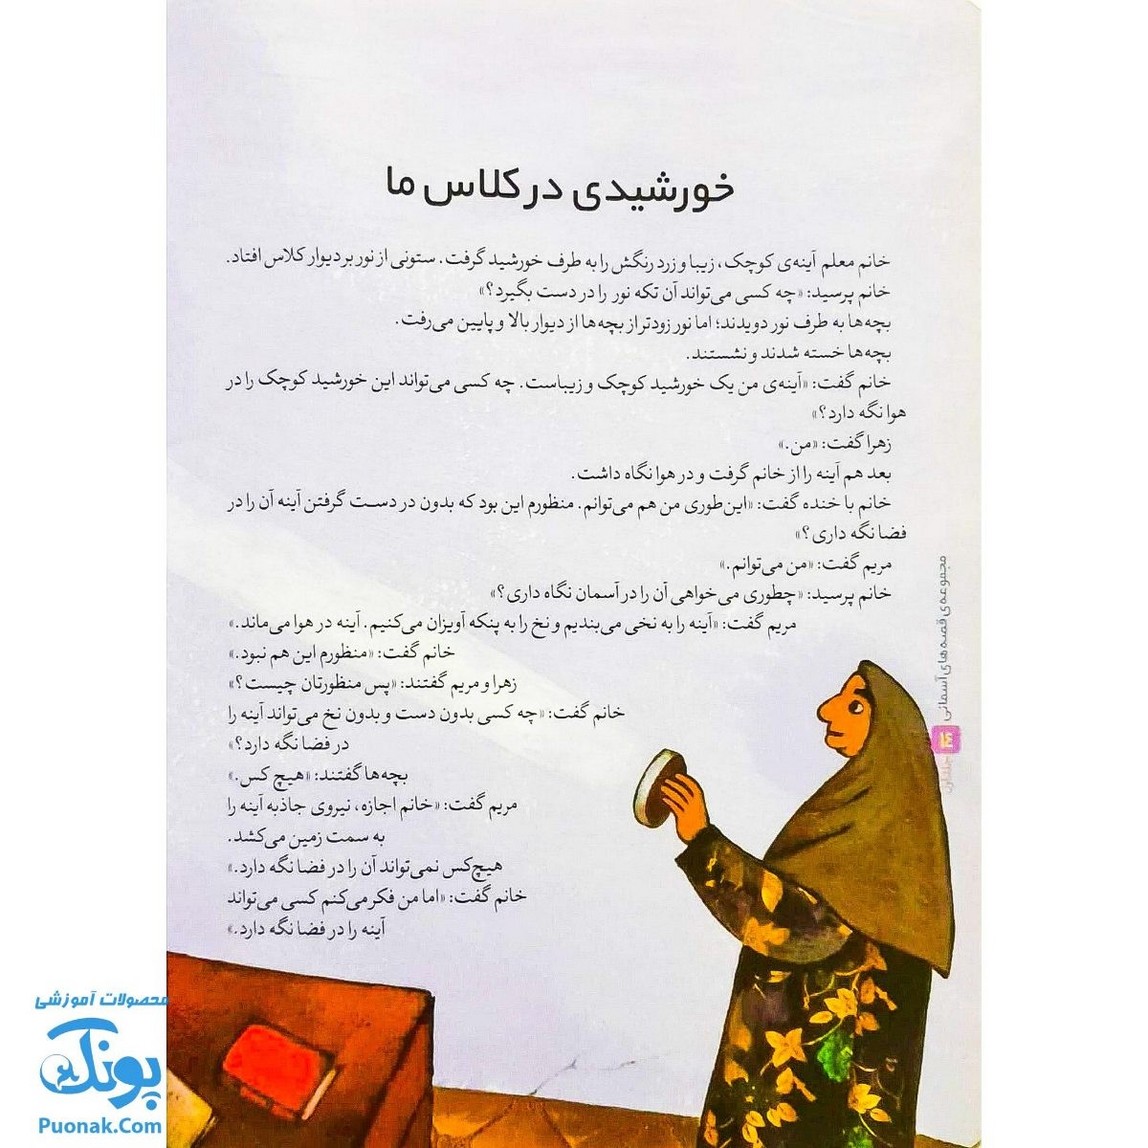 خورشیدی در کلاس ما
خانم معلم آینه‌ی کوچک، زیبا و زرد رنگش را به طرف خورشید گرفت. ستونی از نور بر دیوار کلاس افتاد.
خانم پرسید: «چه کسی می‌تواند آن تکه نور را در دست بگیرد؟»
بچه‌ها به طرف نور دویدند؛ اما نور زودتر از بچه‌ها از دیوار بالا و پایین می‌رفت.
بچه‌ها خسته شدند و نشستند.
خانم گفت: «آینه‌ی من یک خورشید کوچک و زیباست. چه کسی می‌تواند این خورشید کوچک را در
هوا نگه دارد؟»
زهرا گفت: «من.»
بعد هم آینه را از خانم گرفت و در هوا نگاه داشت.
خانم با خنده گفت: «این‌طوری من هم می‌توانم. منظورم این بود که بدون در دست گرفتن آینه آن را در
فضا نگه داری؟»
مریم گفت: «من می‌توانم.»
خانم پرسید: «چطوری می‌خواهی آن را در آسمان نگاه داری؟»
مریم گفت: «آینه را به نخی می‌بندیم و نخ را به پنکه آویزان می‌کنیم. آینه در هوا می‌ماند.»
خانم گفت: «منظورم این هم نبود.»
زهرا و مریم گفتند: «پس منظورتان چیست؟»
خانم گفت: «چه کسی بدون دست و بدون نخ می‌تواند آینه را
در فضا نگه دارد؟»
بچه‌ها گفتند: «هیچ کس.»
مریم گفت: «خانم اجازه، نیروی جاذبه آینه را
به سمت زمین می‌کشد.
هیچ‌کس نمی‌تواند آن را در فضا نگه دارد.»
خانم گفت: «اما من فکر می‌کنم کسی می‌تواند
آینه را در فضا نگه دارد.»
مجموعه‌ی قصه‌های آسمانی
۱۴
محصولات آموزشی
پونک
Puonak.Com